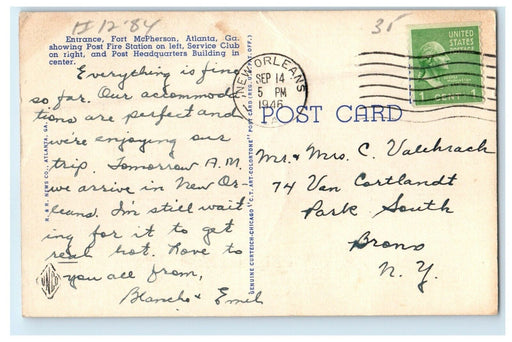 II 12 '84
35
Entrance, Fort McPherson, Atlanta, Ga.
showing Post Fire Station on left, Service Club
on right, and Post Headquarters Building in
center.
Everything is fine
so far. Our accommoda-
tions are perfect and
we're enjoying our
trip. Tomorrow A.M
we arrive in New Or-
leans. I'm still wait
ing for it to get
real hot. Love to
you all from,
Blanche + Emil
R. & R. NEWS CO., ATLANTA, GA.
GENUINE CURTEICH-CHICAGO "C.T. ART-COLORTONE" POST CARD (REG. U.S. PAT. OFF.)
NEW ORLEANS
SEP 14
5 PM
1946
LA.
UNITED
STATES
POSTAGE
1 CENT 1
POST CARD
Mr. & Mrs. C.
74 Van Cortlandt
Park South
Bronx
N. Y.